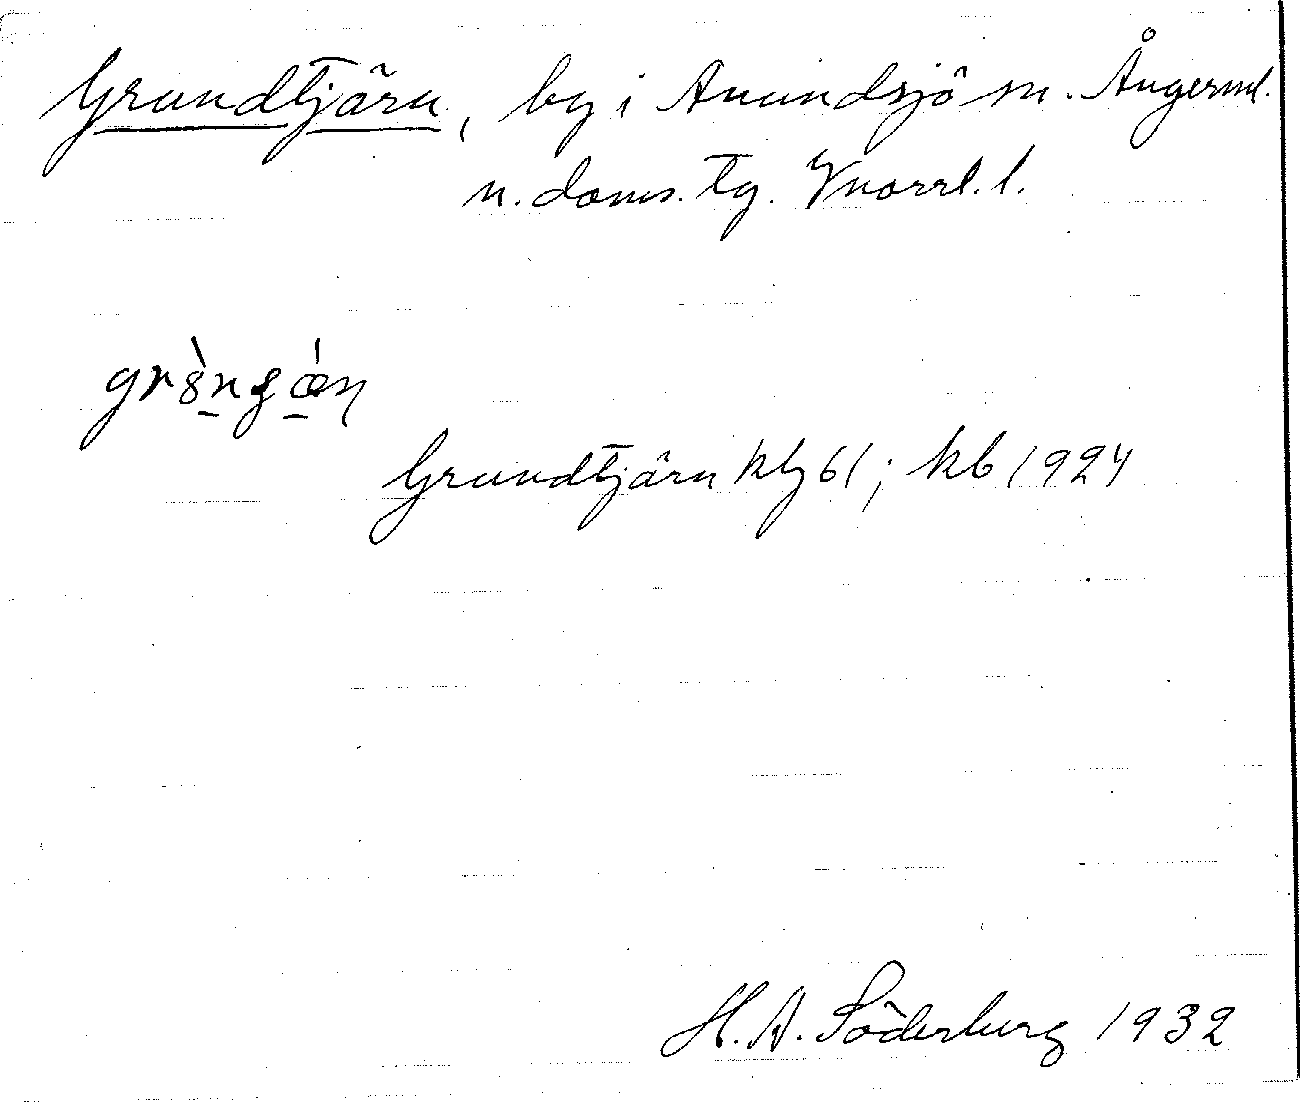 Grundtjärn, by i Anundsjö sn. Ångerml.
n. doms. tg. Vnorrl. l.
Grundtjärn kby 61; kb 1924
H. A. Söderberg 1932